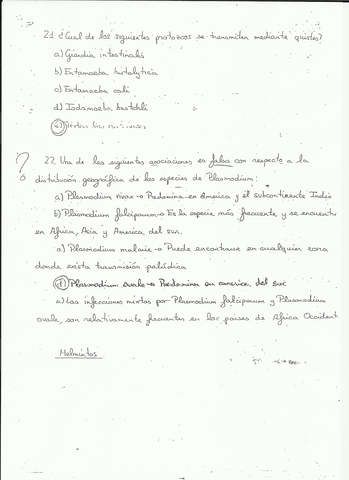 21 ¿Cual de los siguientes protozoos se transmiten mediante quistes?
a) Giardia intestinalis
b) Entamoeba histolytica
c) Entamoeba coli
d) Iodamoeba butchli
e) Todas las
? 22. Una de las siguientes asociaciones es falsa con respecto a la
distribución geográfica de las especies de Plasmodium:
a) Plasmodium vivax → Predomina en America y el subcontinente Indio
b) Plasmodium falciparum → Es la especie más frecuente y se encuentr
en Africa, Asia y America del sur.
c) Plasmodium malarie → Puede encontrarse en cualquier zona
donde exista transmisión palúdica
d) Plasmodium ovale → Predomina en america del sur
e) Las infecciones mixtas por Plasmodium falciparum y Plasmodium
ovale, son relativamente frecuentes en los paises de Africa Occident
Helmintos